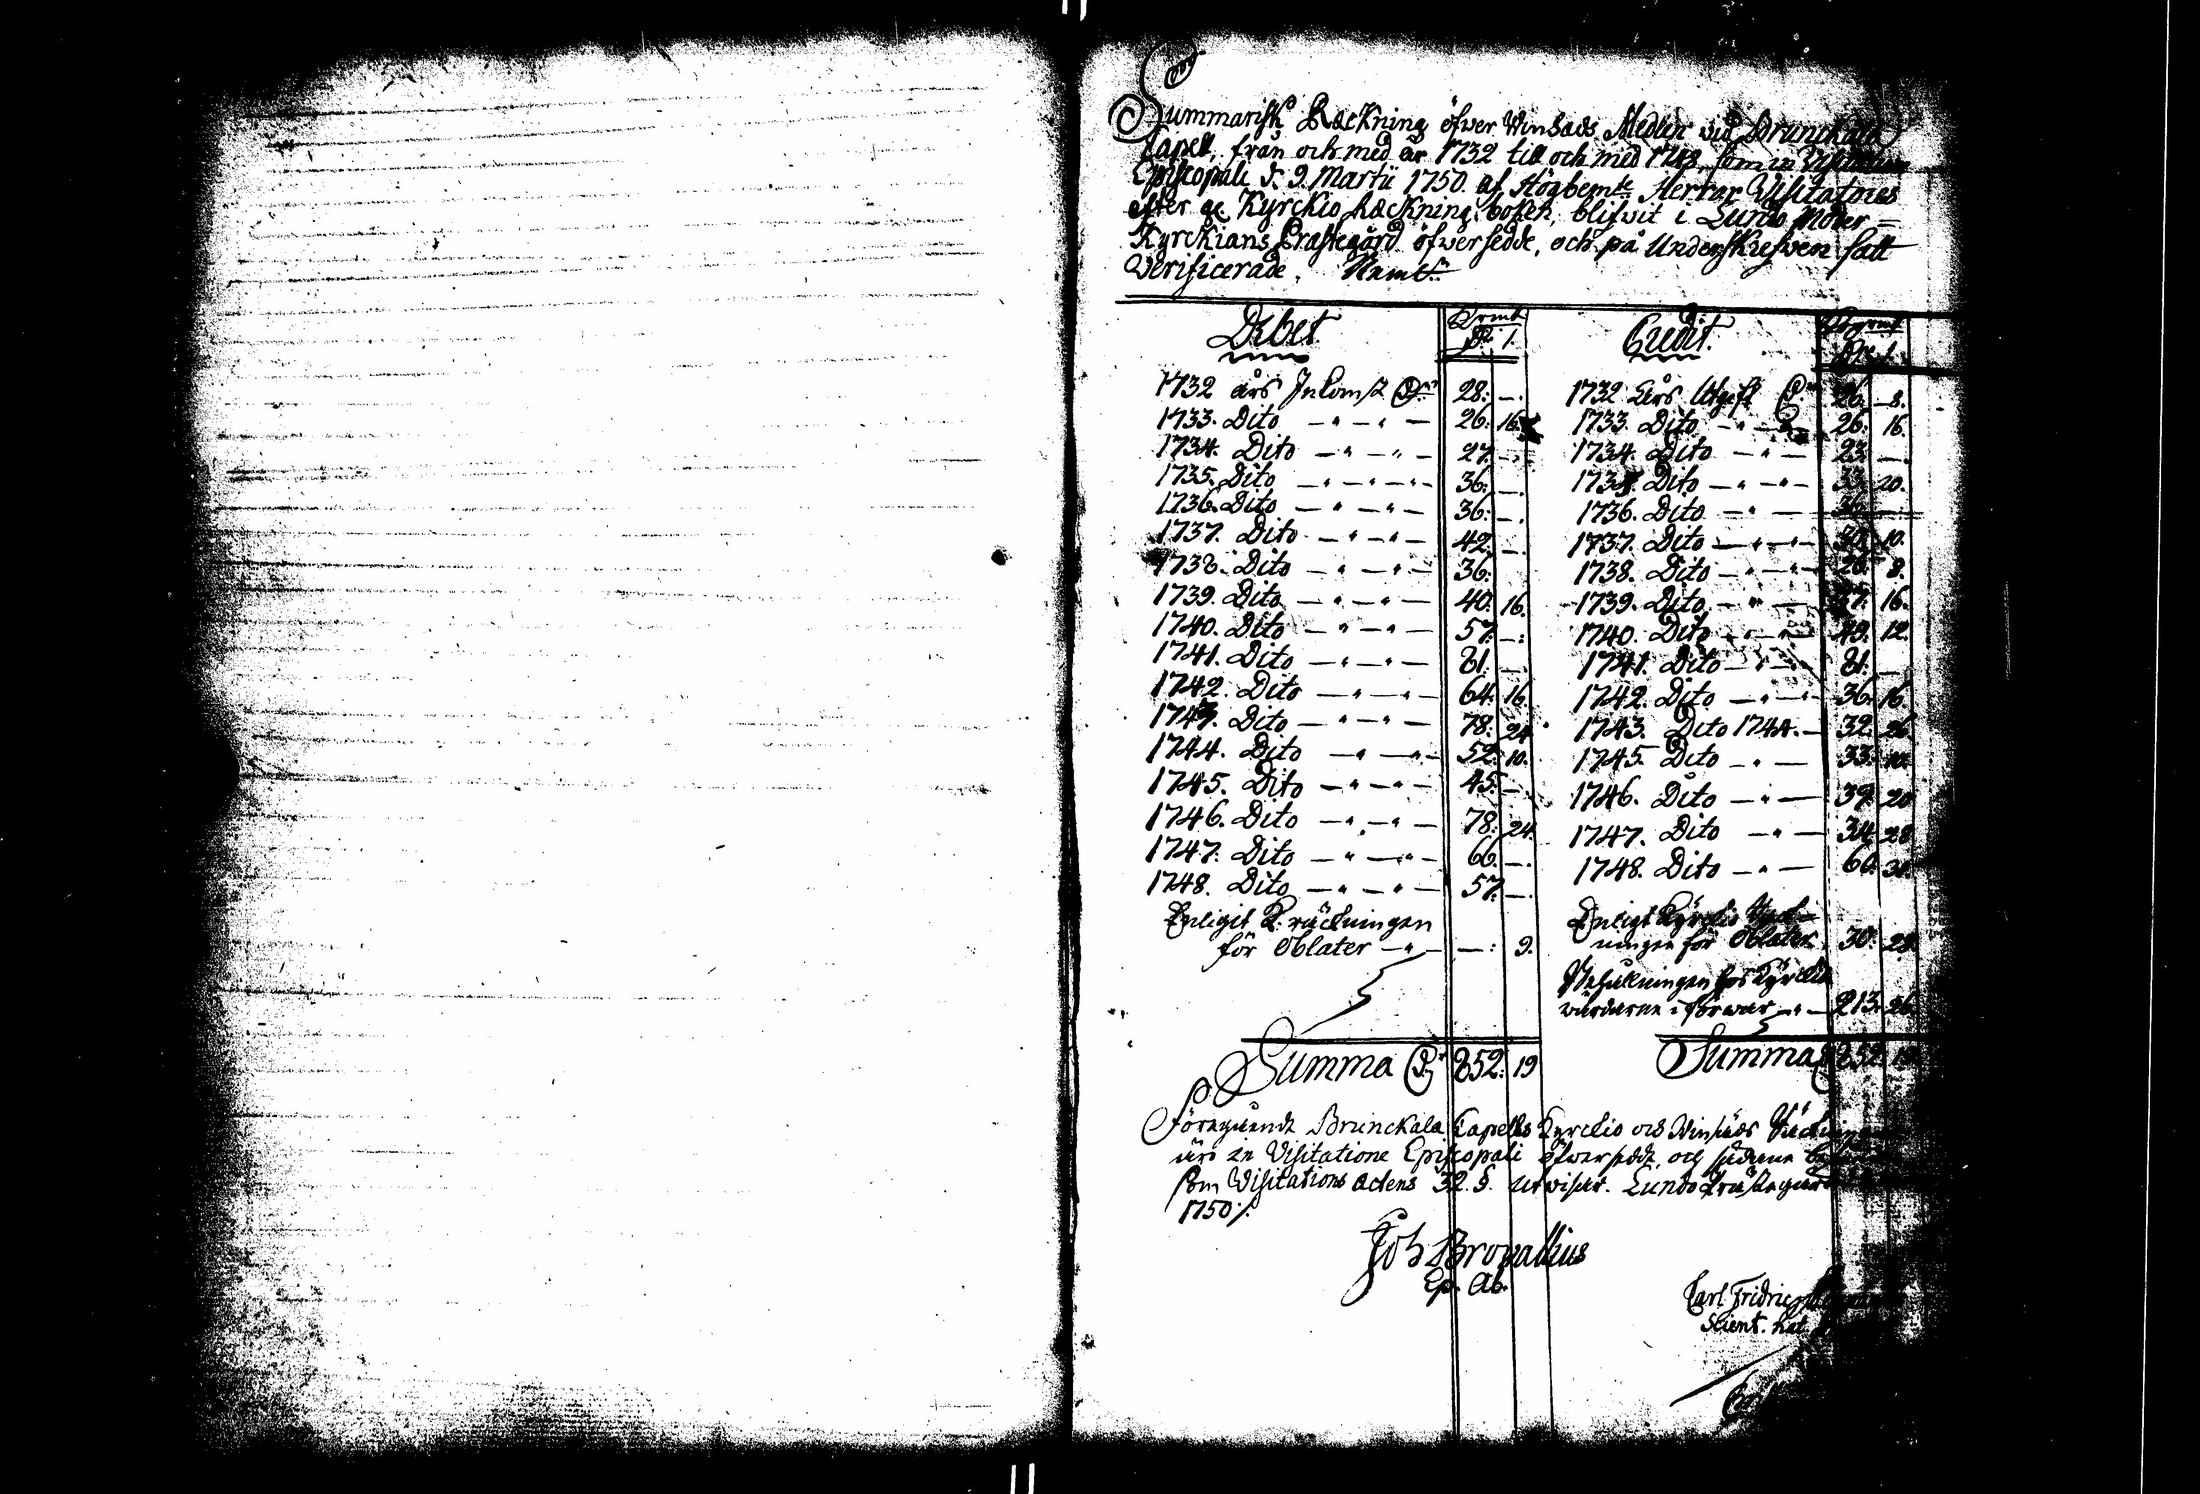 Summarisk Räckning öfwer Winsäds Medlen wid Brunckala
Capell, från och med år 1732 till och med 1748, som in Visitatione
Episcopali d. 9. Martii 1750. af Högbemte Herrar Visitatores
efter ge Kyrckio Räckning boken, blifwit i Lundo Moder=
Kyrckians Prästegård öfwersedde, och på Underskrefwen satt
Verificerade. Nemt:
Debet Credit.
1732 års Inkomst 28: —. 1732 Års Utgift 26: 8.
1733. Dito 26: 16. 1733. Dito 26: 16.
1734. Dito 27: — 1734. Dito 23: —.
1735. Dito 36: —. 1735. Dito 33: 20.
1736. Dito 36: —. 1736. Dito 36: —
1737. Dito 42: —. 1737. Dito 10.
1738. Dito 36: 1738. Dito 26: 8.
1739. Dito 40: 16. 1739. Dito 27: 16.
1740. Dito 57: —: 1740. Dito 49: 12.
1741. Dito 81: — 1741. Dito 81: —
1742. Dito 64: 16. 1742. Dito 36: 16.
1743. Dito 78: 24. 1743. Dito 1744. 32: 26
1744. Dito 52: 10.
1745. Dito 45: — 1745. Dito 33: 10.
1746. Dito 78: 24. 1746. Dito 39: 20
1747. Dito 66: —. 1747. Dito 34: 28
1748. Dito 57: — 1748. Dito 60: 31.
Enligit K. räckningen Enligt Kyrckio Räck-
för Oblater — : 9. ningen för Oblater 30: 28.
Behållningen hos Kyrckio
wärdarne i förwar 213: 26.
Summa 852: 19 Summa 852: 19
Föregående Brunckala Capells Kyrckio och Winsäds Räckningar
äro in Visitatione Episcopali öfwersedde, och sådane
som Visitations Actens 32. §. utwisar. Lundo Prästegård
1750./.
Joh Browallius
Ep. Ab.
Carl Fridric
Scient. Nat.